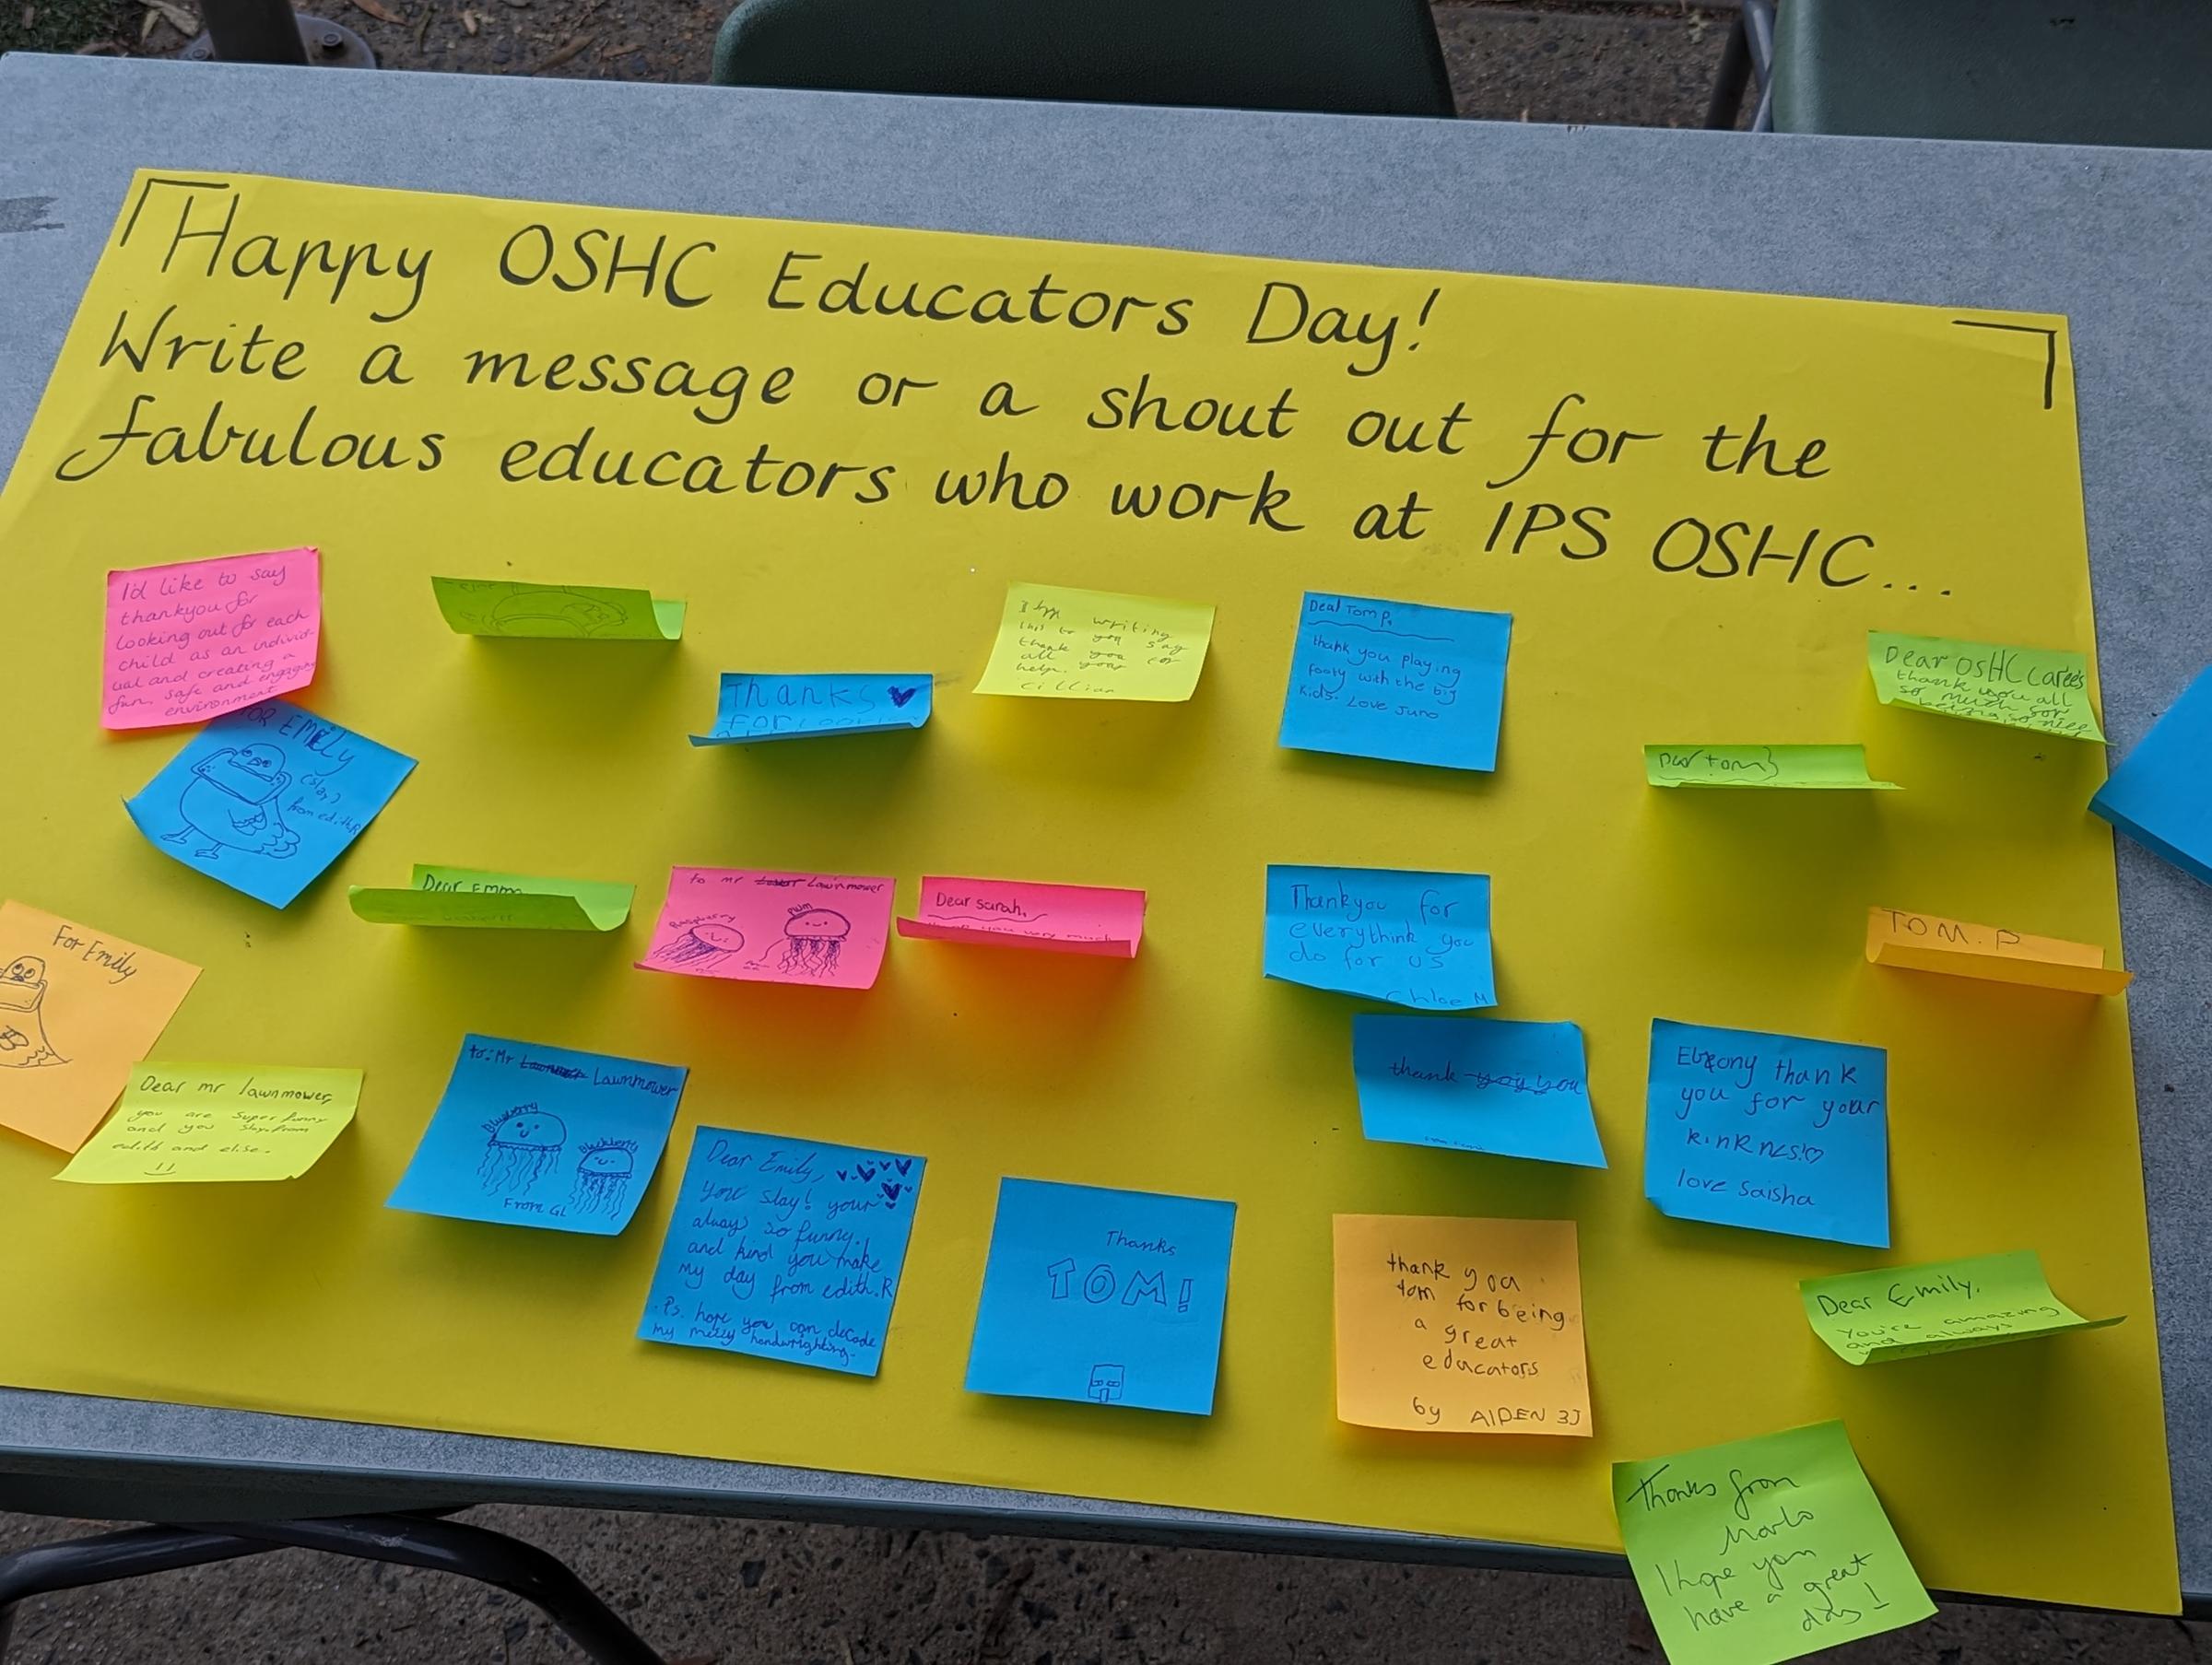 Happy OSHC Educators Day!
Write a message or a shout out for the
fabulous educators who work at IPS OSHC...
I'd like to say
thankyou for
looking out for each
child as an individ-
ual and creating a
fun, safe and engaging
environment
Thanks
for
writing
this to you say
thank you for
all your
help.
Cillian
Dear Tom P.
thank you playing
footy with the big
kids. Love Juno
Dear OSHC carers
thank you all
so much for
being so nice
Dear tom
FOR EMILY
(slay)
from edith.R
Dear Emma
to mr Lawnmower
Raspberry
Plum
Dear sarah,
thank you very much
Thankyou for
everythink you
do for us
Chloe M
TOM. P
For Emily
Dear mr lawnmower,
you are super funny
and you slay. from
edith and elise.
to: Mr Lawnmower
Blueberry
Blackberry
From GL
thank you
Ebony thank
you for your
kinknes!
love Saisha
Dear Emily,
you slay! your
always so funny.
and kind you make
my day from edith.R
Ps. hope you can decode
my messy handwrighting.
Thanks
TOM!
thank you
tom for being
a great
educators
by AIDEN 3J
Dear Emily,
You're amazing
and always
Thanks from
Marlo
I hope you
have a great
day!